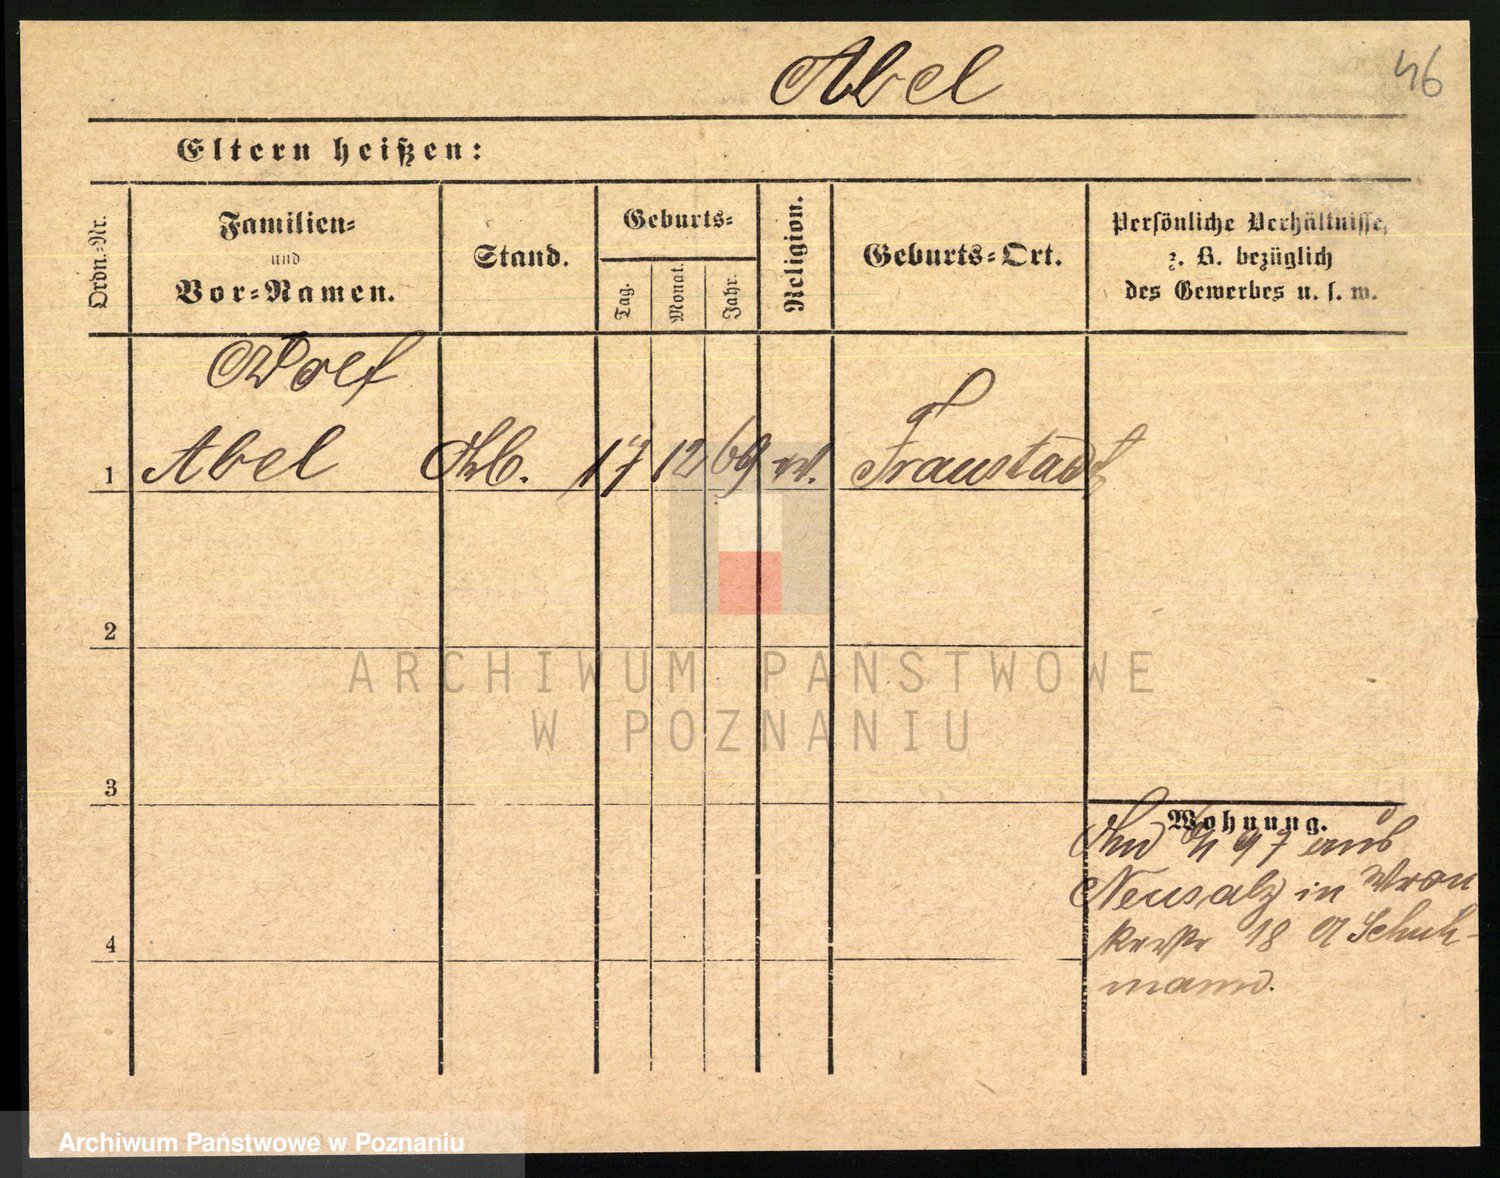 Abel
46
Eltern heißen:
Ordn.-Nr.
Familien-
und
Vor-Namen.
Stand.
Geburts-
Tag.
Monat.
Jahr.
Religion.
Geburts-Ort.
Persönliche Verhältnisse,
z. B. bezüglich
des Gewerbes u. s. w.
Adolf
1 Abel 17 12 69 ev. Fraustadt
2
3
4
Wohnung.
97 aus
Neusalz in Wron
kerstr 18 Schuh-
mann.
ARCHIWUM PAŃSTWOWE
W POZNANIU
Archiwum Państwowe w Poznaniu